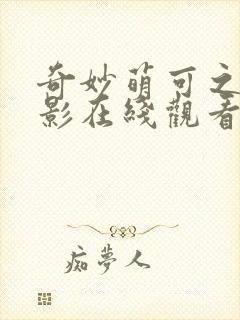 奇妙萌可之
影在綫觀看
痴夢人